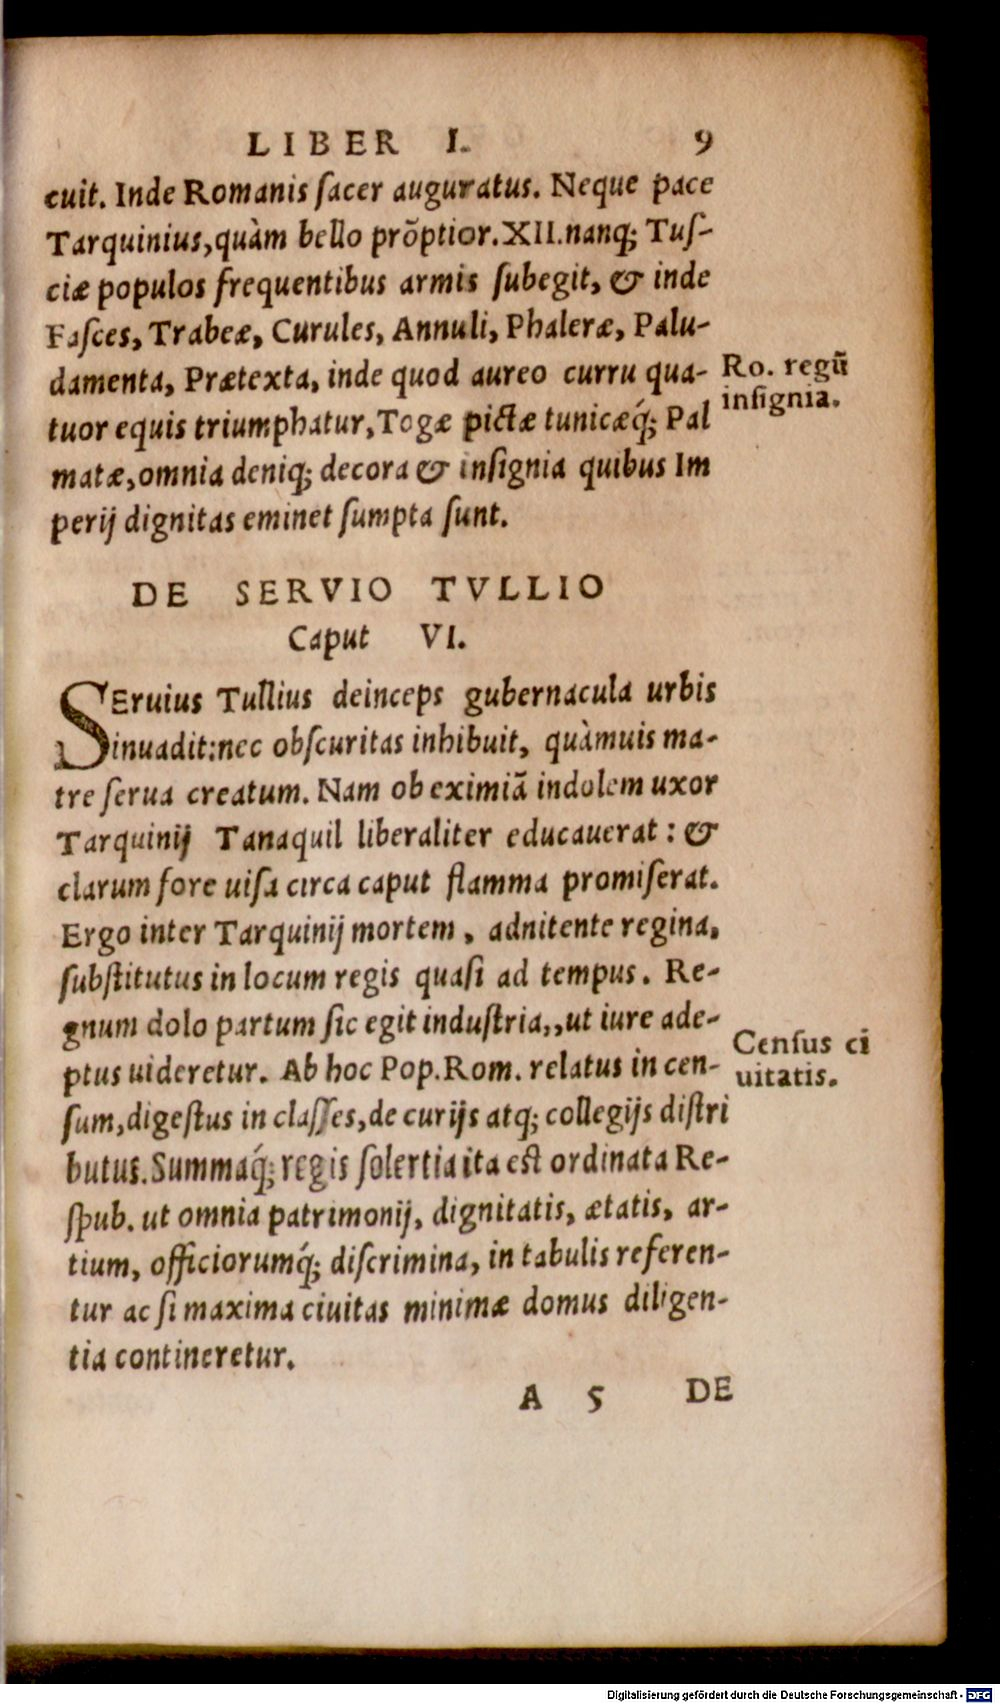 LIBER I. 9
cuit. Inde Romanis ſacer auguratus. Neque pace
Tarquinius,quàm bello prõptior.XII.nanq; Tuſ-
ciæ populos frequentibus armis ſubegit, & inde
Faſces, Trabeæ, Curules, Annuli, Phaleræ, Palu-
damenta, Prætexta, inde quod aureo curru qua-
Ro. regũ
tuor equis triumphatur,Togæ pictæ tunicæq́; Pal
inſignia.
matæ,omnia deniq; decora & inſignia quibus Im
perij dignitas eminet ſumpta ſunt.
DE SERVIO TVLLIO
Caput VI.
SEruius Tullius deinceps gubernacula urbis
inuadit:nec obſcuritas inhibuit, quàmuis ma-
tre ſerua creatum. Nam ob eximiã indolem uxor
Tarquinij Tanaquil liberaliter educauerat: &
clarum fore uiſa circa caput flamma promiſerat.
Ergo inter Tarquinij mortem, adnitente regina,
ſubſtitutus in locum regis quaſi ad tempus. Re-
gnum dolo partum ſic egit induſtria,,ut iure ade-
Cenſus ci
ptus uideretur. Ab hoc Pop.Rom. relatus in cen-
uitatis.
ſum,digeſtus in claſſes,de curijs atq; collegijs diſtri
butus.Summaq́; regis ſolertia ita eſt ordinata Re-
ſpub. ut omnia patrimonij, dignitatis, ætatis, ar-
tium, officiorumq́; diſcrimina, in tabulis referen-
tur ac ſi maxima ciuitas minimæ domus diligen-
tia contineretur.
A 5 DE
Digitalisierung gefördert durch die Deutsche Forschungsgemeinschaft - DFG